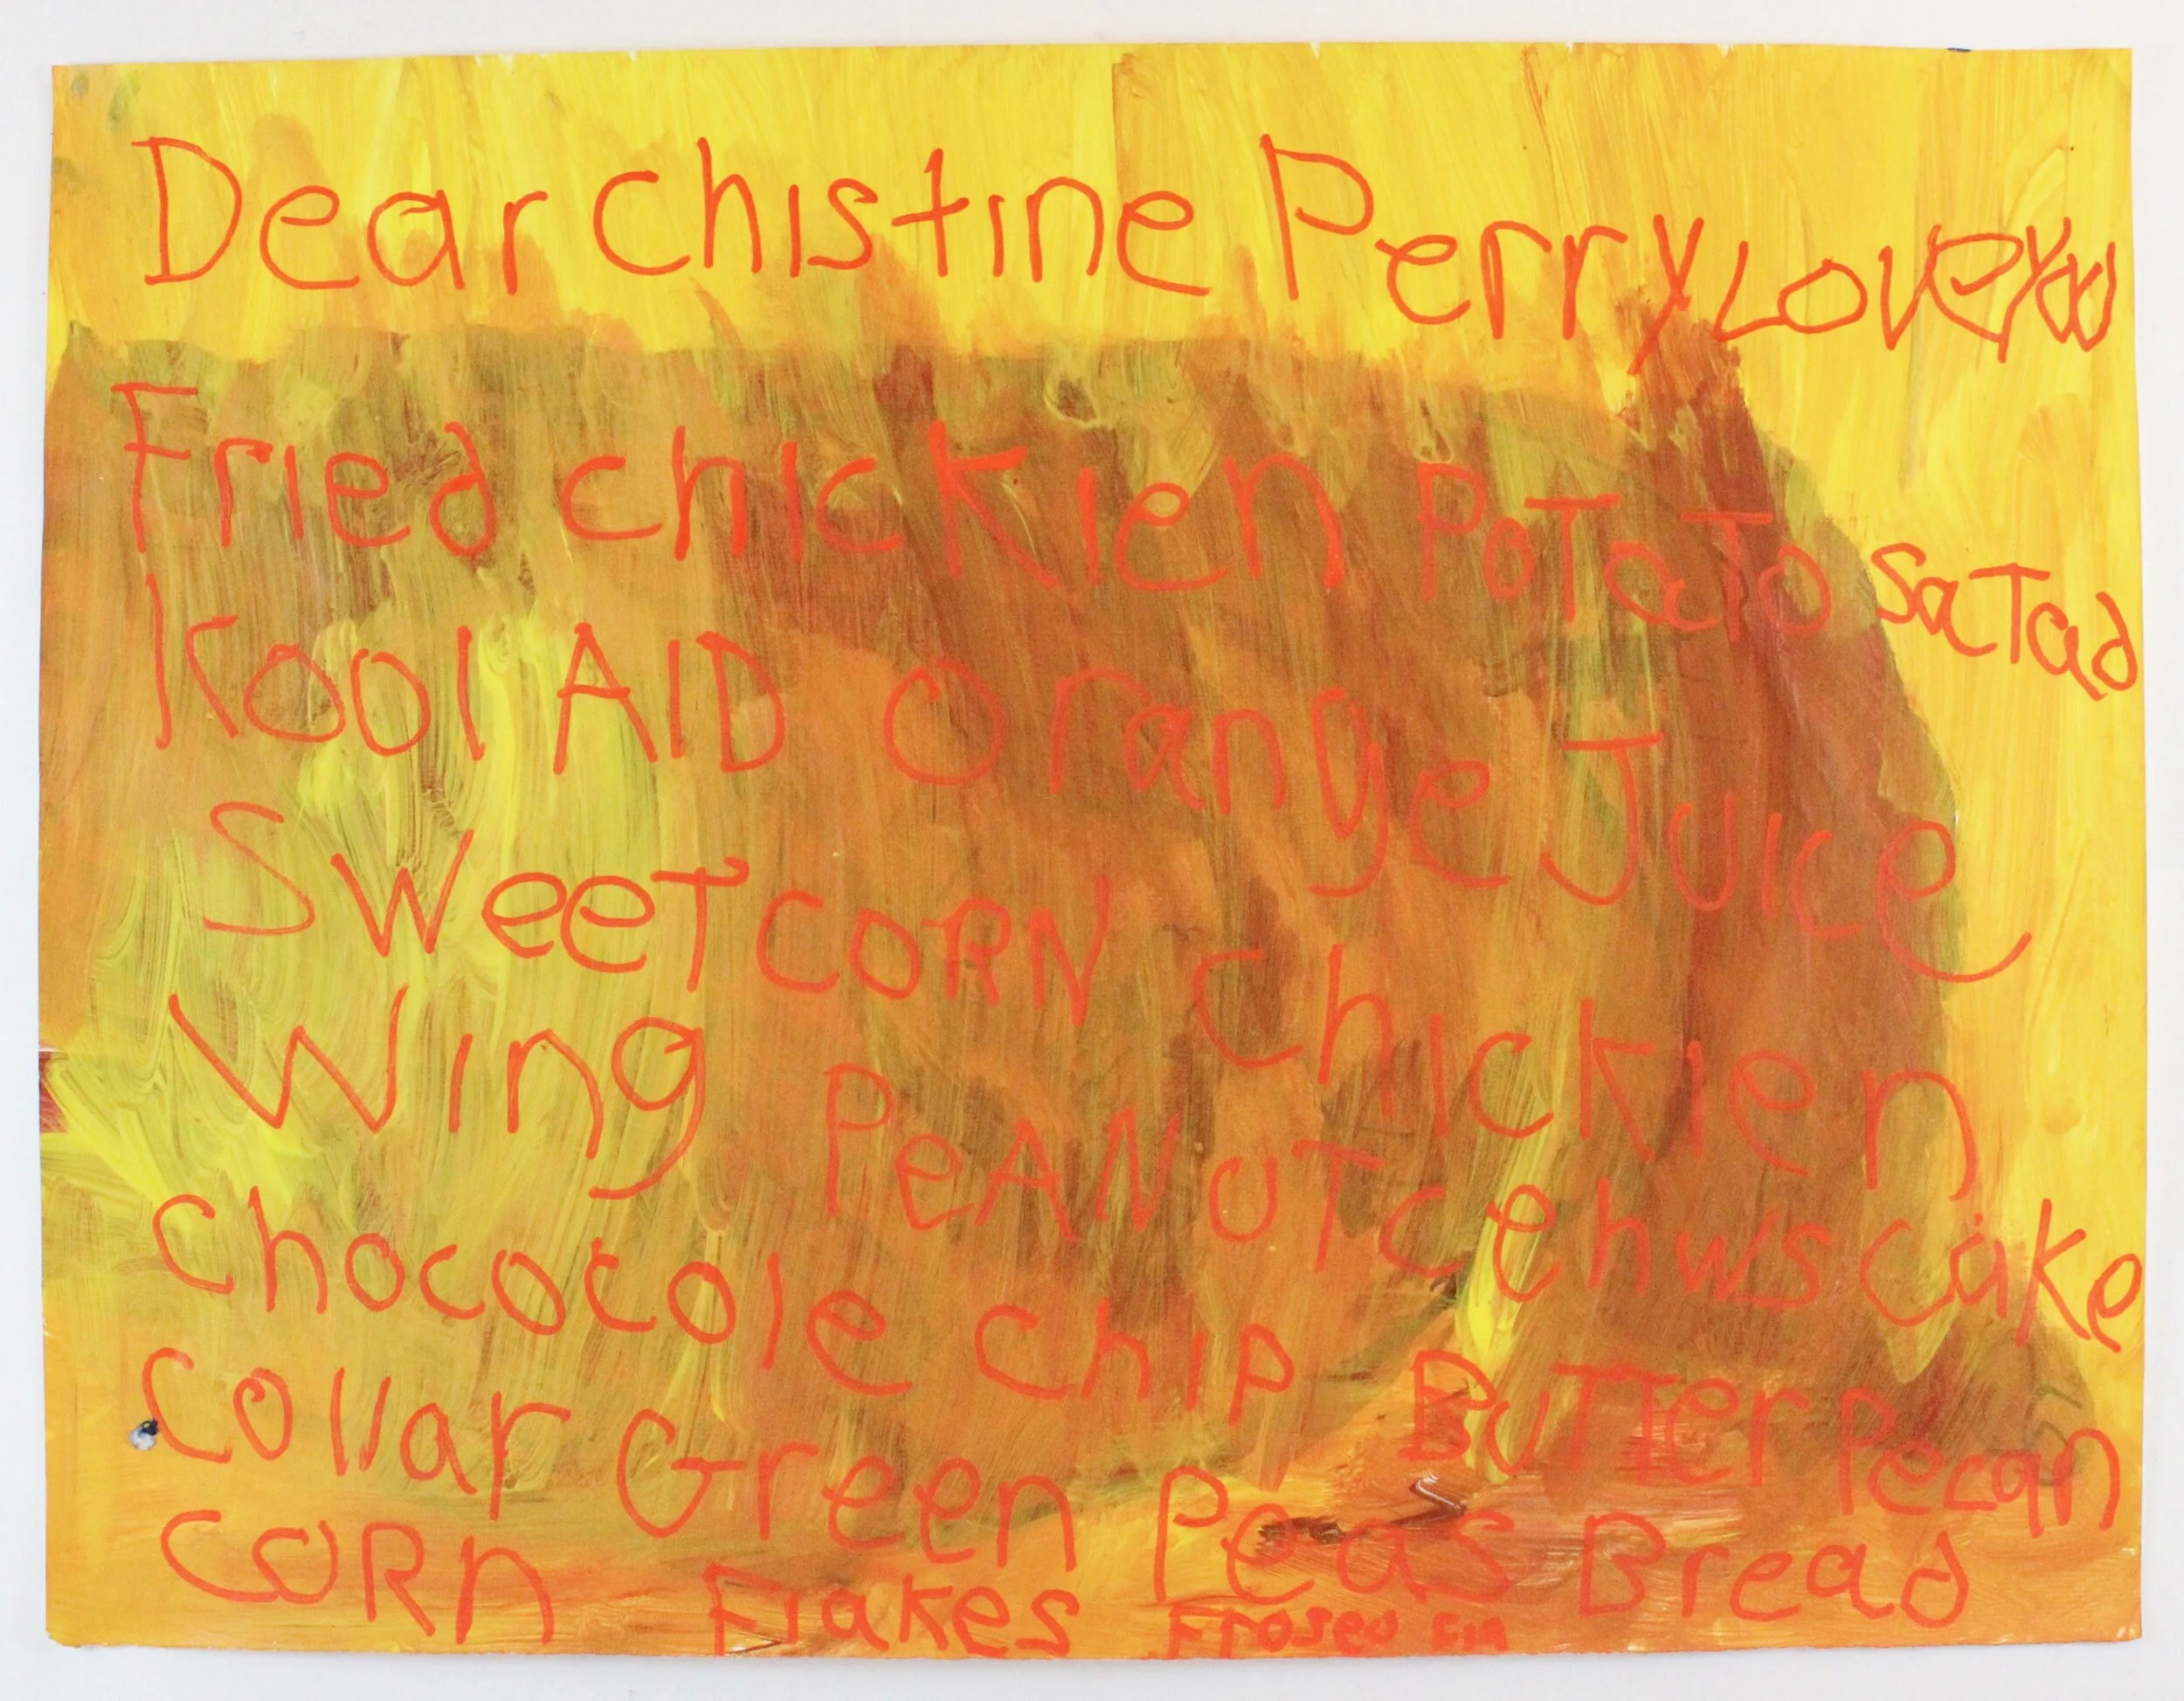 Dear Chistine Perry Love You
Fried chickien PoTaTo SaTad
Kool AID Orange Juice
SweeT CORN chickien
Wing PeANUT cehws cake
chococole chip BuTTer Pecan
Collar Green Peas Bread
CORn Flakes Frosed